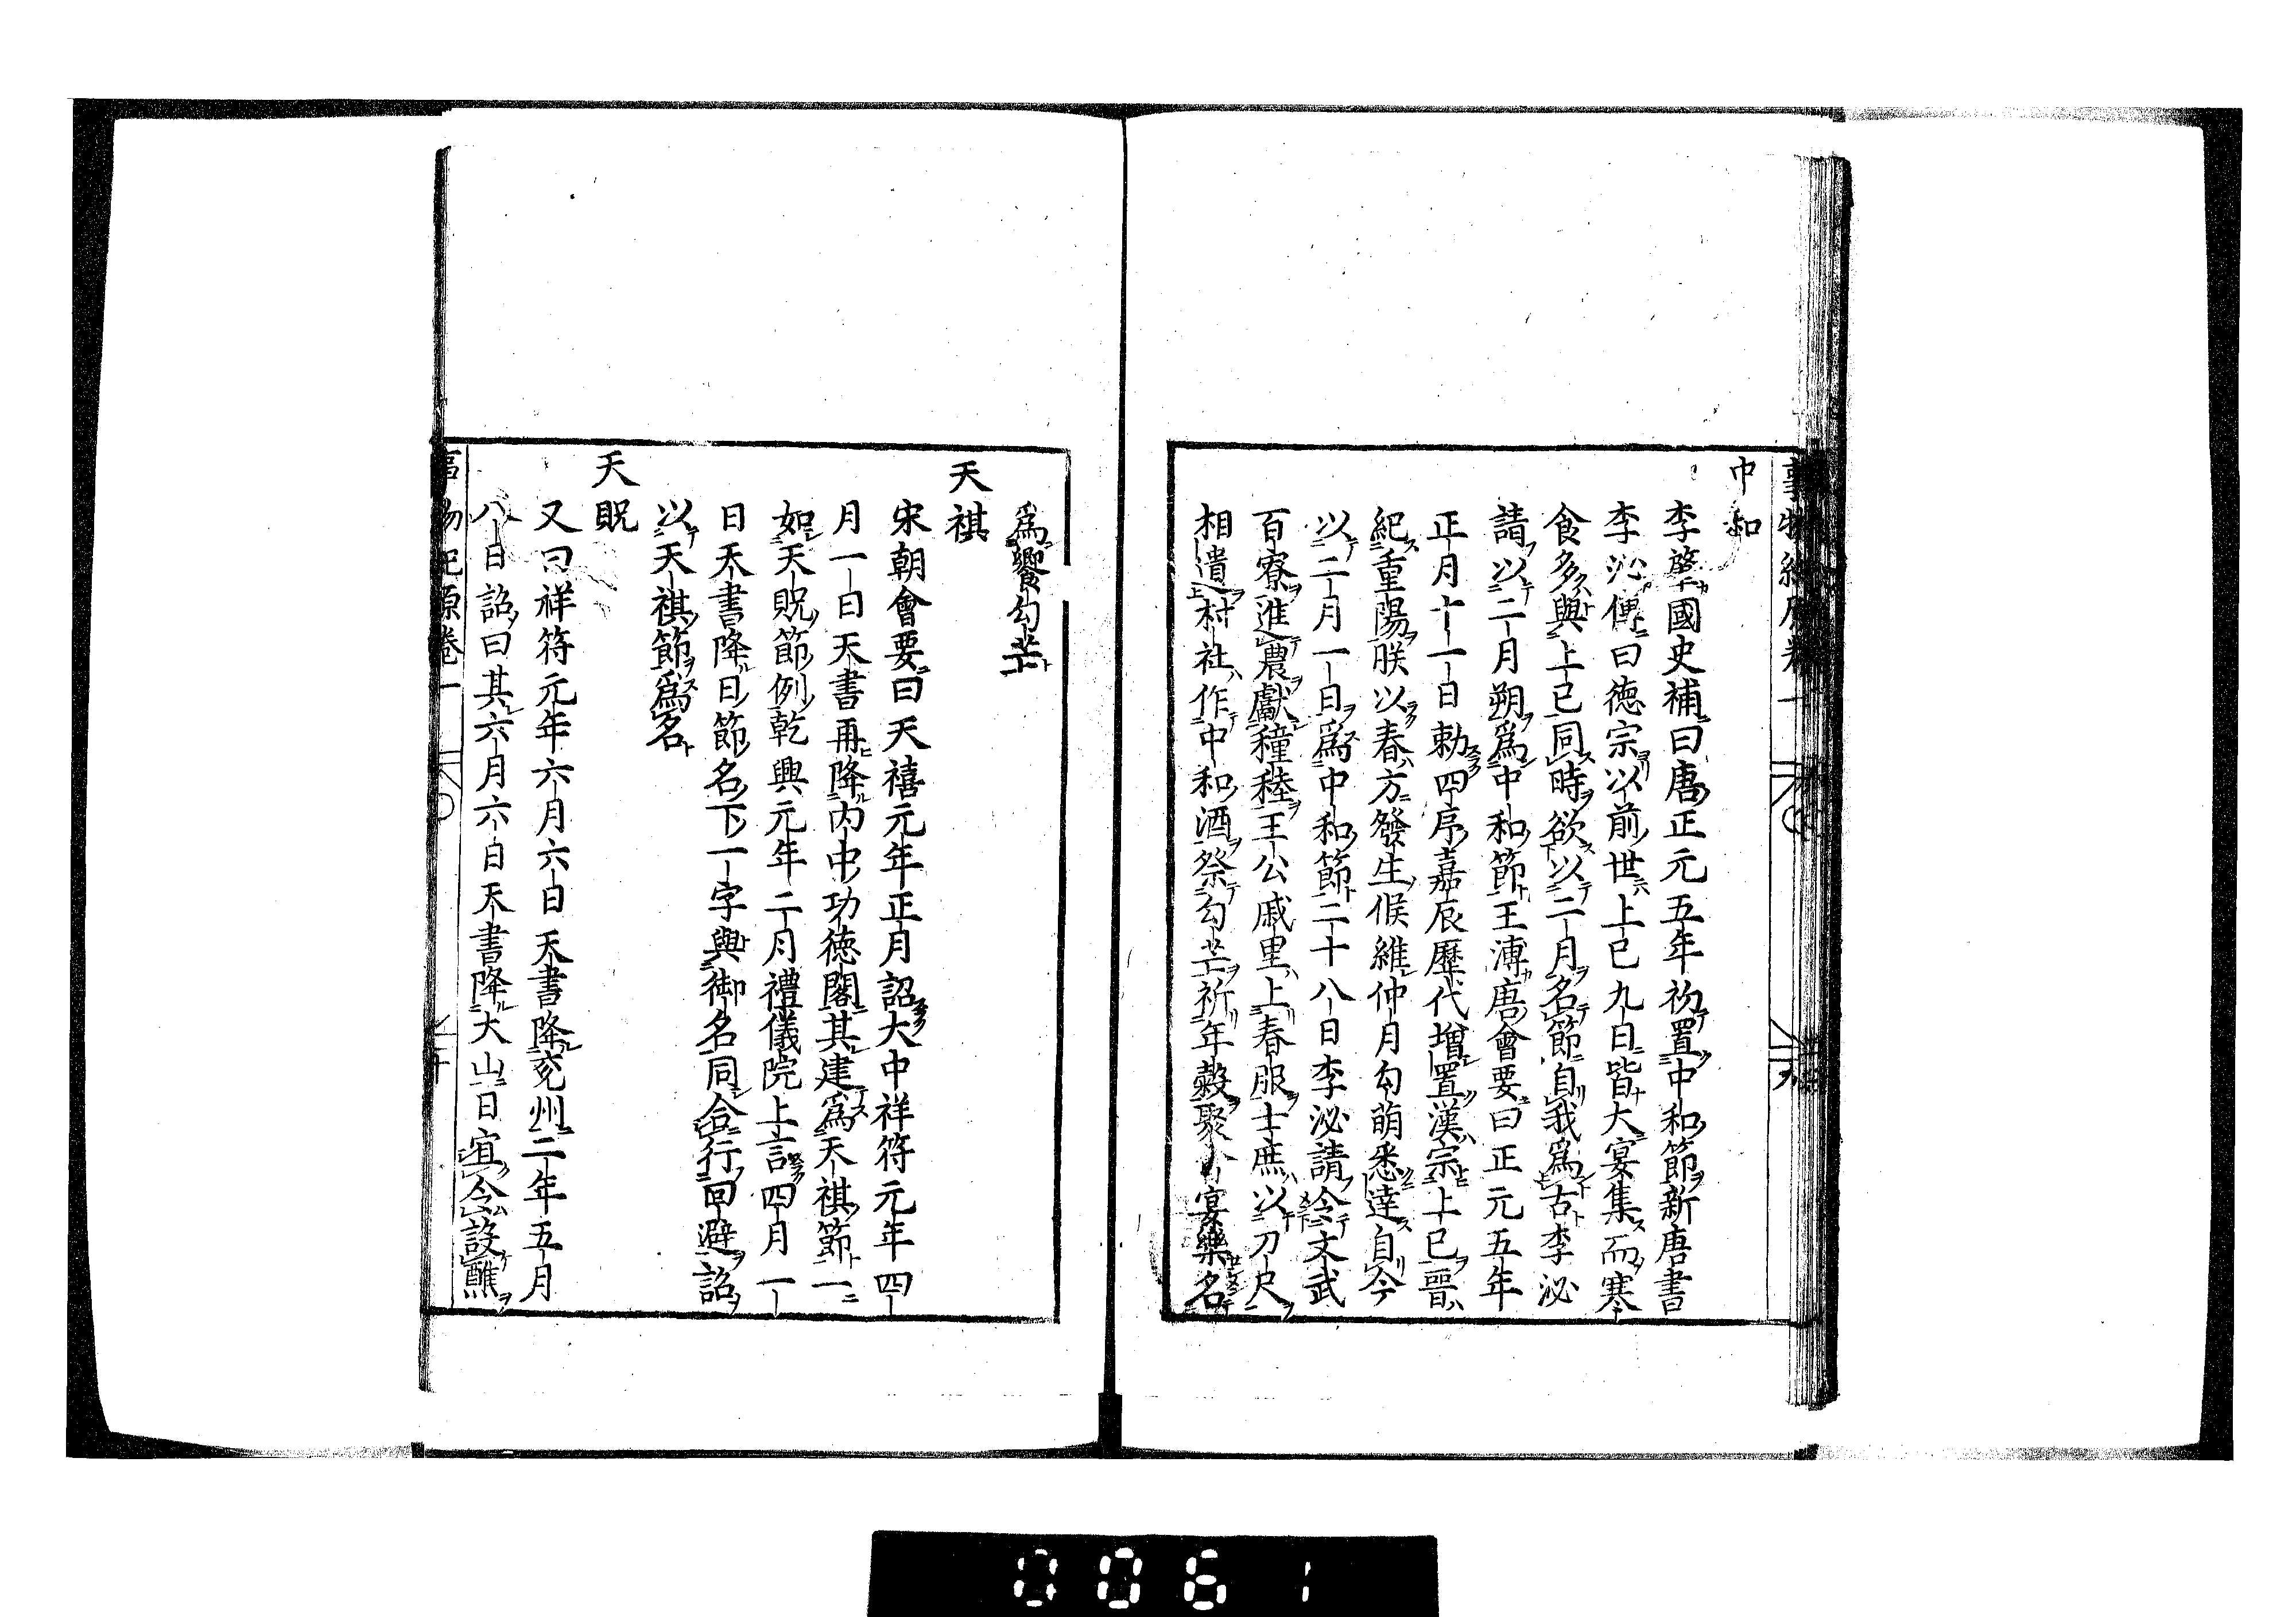 中和
李肇國史補曰唐正元五年初置中和節新唐書
李泌傳曰德宗以前世上巳九日皆大宴集而寒
食多與上巳同時欲以二月名節自我爲古李泌
請以二月朔爲中和節王溥唐會要曰正元五年
正月十一日勅四序嘉辰歷代增置漢宗上巳晉
紀重陽朕以春方發生候維仲月勾萌悉達自今
以二月一日爲中和節二十八日李泌請令文武
百寮進農獻穜稑王公戚里上春服士庶以刀尺
相遺村社作中和酒祭勾芒祈年穀聚會宴樂名
爲饗勾芒
天祺
宋朝會要曰天禧元年正月詔大中祥符元年四
月一日天書再降內中功德閣其建爲天祺節一
如天貺節例乾興元年二月禮儀院上言四月一
日天書降日節名下一字與御名同合行回避詔
以天祺節爲名
天貺
又曰祥符元年六月六日天書降兗州二年五月
八日詔曰其六月六日天書降大山日宜令設醮
事物紀原卷一
0061